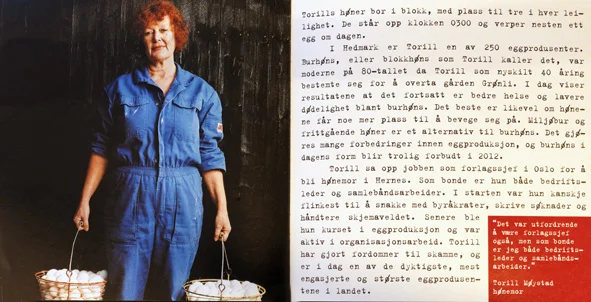 Torills høner bor i blokk, med plass til tre i hver lei-
lighet. De står opp klokken 0300 og verper nesten ett
egg om dagen.
I Hedmark er Torill en av 250 eggprodusenter.
Burhøns, eller blokkhøns som Torill kaller det, var
moderne på 80-tallet da Torill som nyskilt 40 åring
bestemte seg for å overta gården Grønli. I dag viser
resultatene at det fortsatt er bedre helse og lavere
dødelighet blant burhøns. Det beste er likevel om høne-
ne får noe mer plass til å bevege seg på. Miljøbur og
frittgående høner er et alternativ til burhøns. Det gjø-
res mange forbedringer innen eggproduksjon, og burhøns i
dagens form blir trolig forbudt i 2012.
Torill sa opp jobben som forlagssjef i Oslo for å
bli hønemor i Hernes. Som bonde er hun både bedrifts-
leder og samlebåndsarbeider. I starten var hun kanskje
flinkest til å snakke med byråkrater, skrive søknader og
håndtere skjemaveldet. Senere ble
hun kurset i eggproduksjon og var
aktiv i organisasjonsarbeid. Torill
har gjort fordommer til skamme, og
er i dag en av de dyktigste, mest
engasjerte og største eggprodusen-
tene i landet.
"Det var utfordrende
å være forlagssjef
også, men som bonde
er jeg både bedrifts-
leder og samlebånds-
arbeider."
Torill Møystad
hønemor